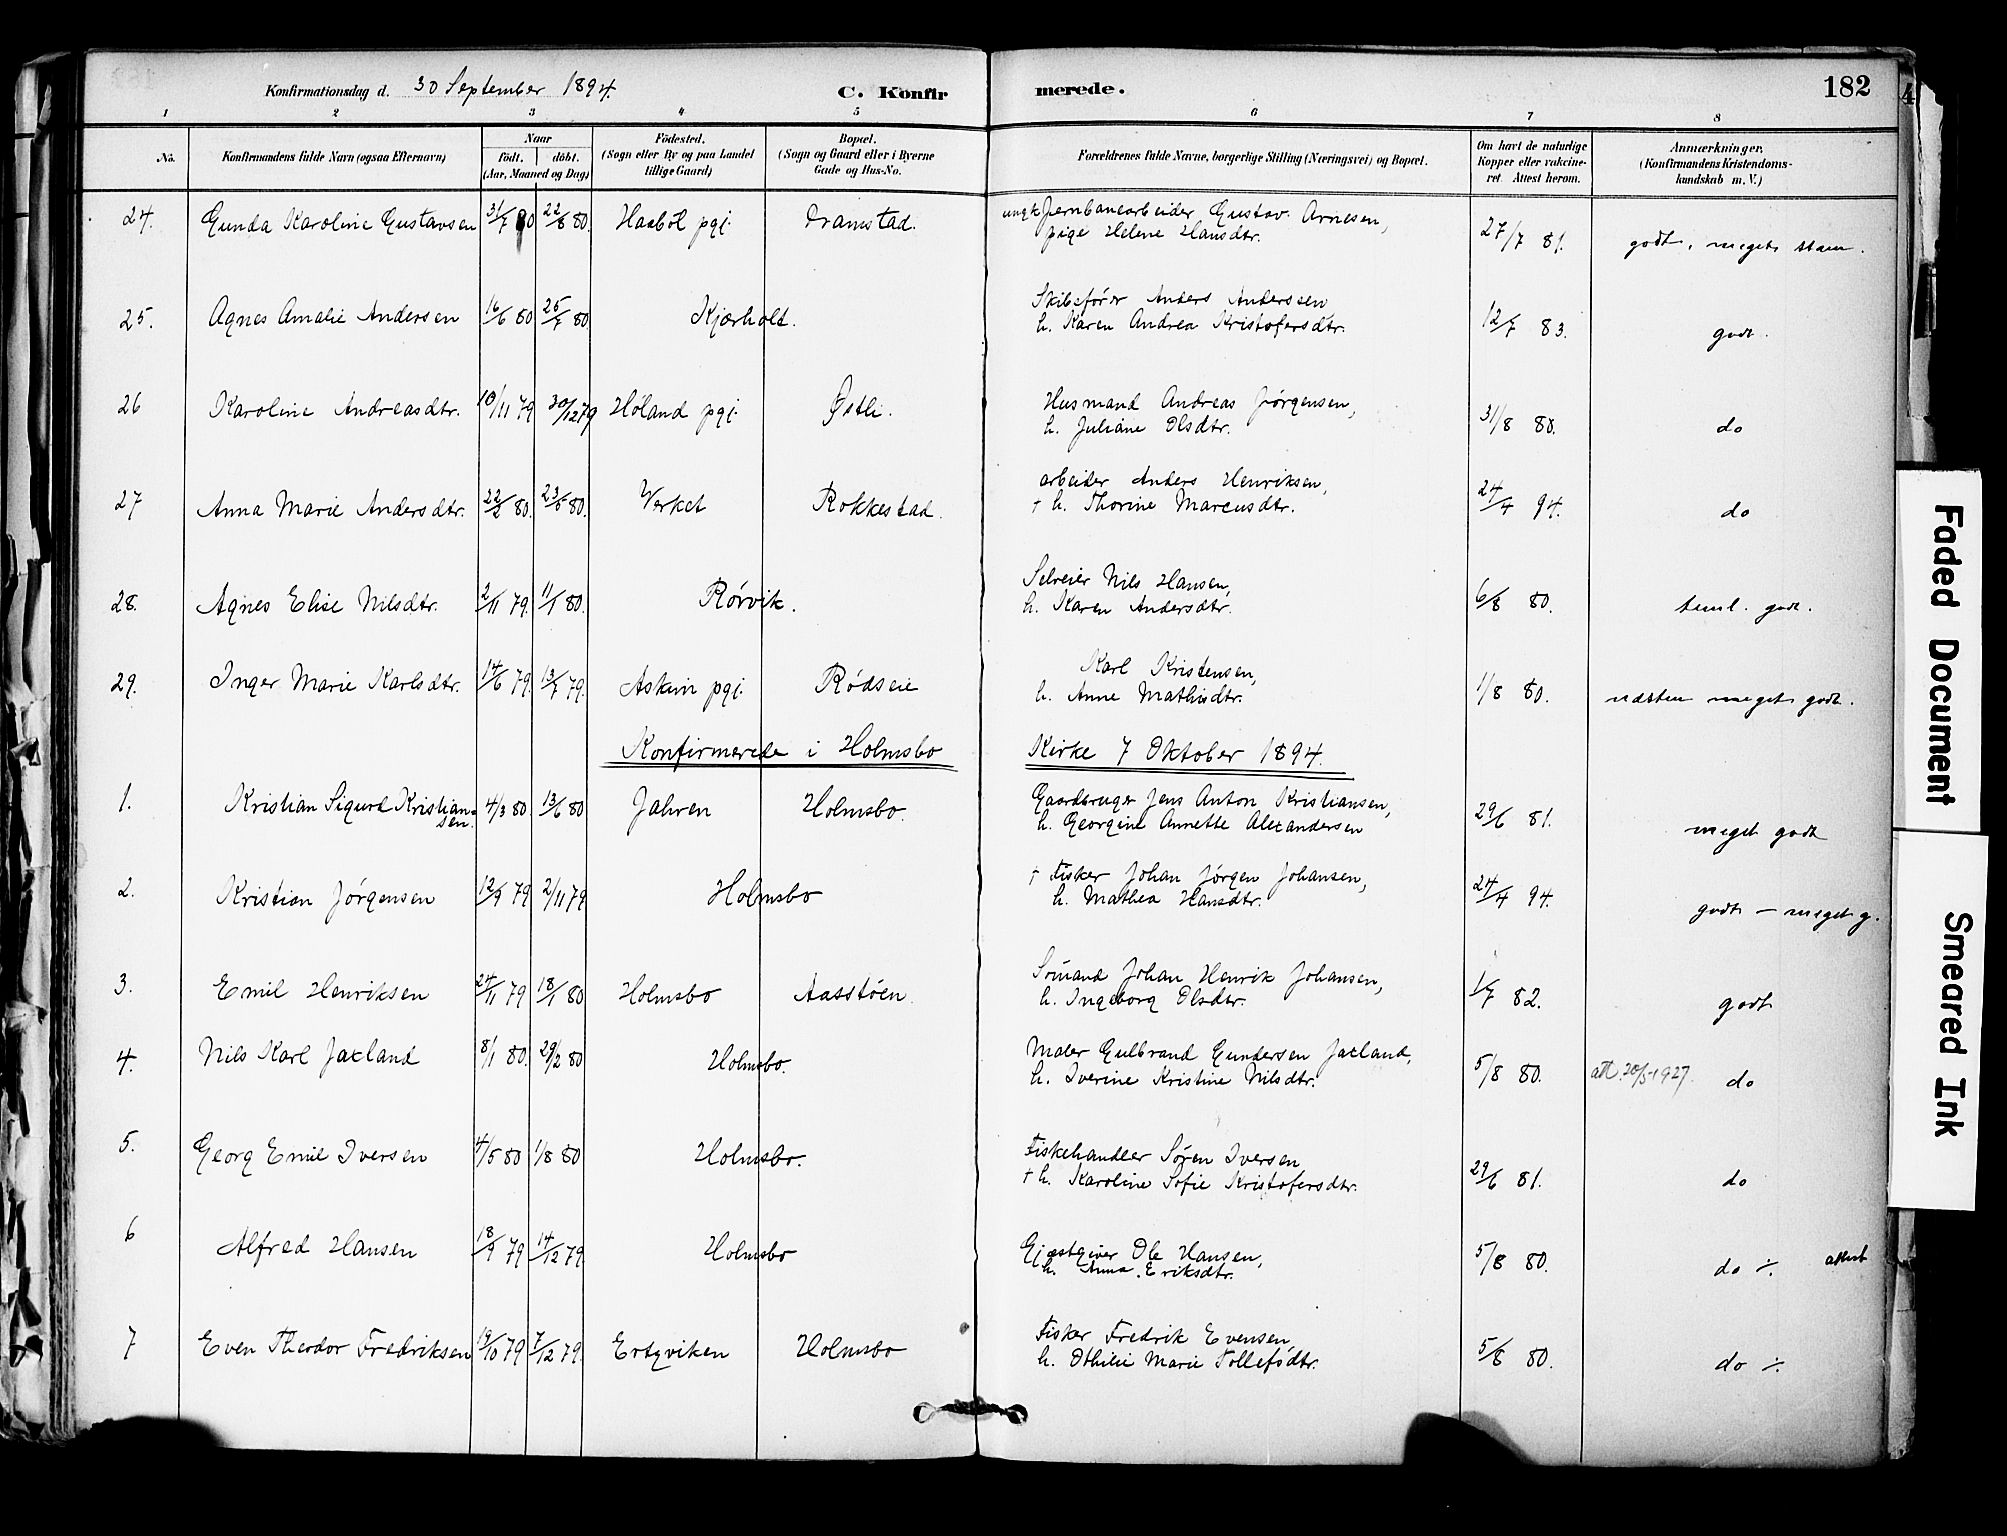 Konfirmationsdag d. 30 September 1894. C. Konfir merede. 182
1 2 3 4 5 6 7 8
No. Konfirmandens fulde Navn (ogsaa Efternavn) Naar født. døbt. (Aar, Maaned og Dag) Fødested. (Sogn eller By og paa Landet tillige Gaard) Bopæl. (Sogn og Gaard eller i Byerne Gade og Hus-No. Forældrenes fulde Navne, borgerlige Stilling (Næringsvei) og Bopæl. Om havt de naturlige Kopper eller vakcineret. Attest herom. Anmærkninger. (Konfirmandens Kristendomskundskab m. V.)
24. Gunda Karoline Gustavsen 31/7 80 22/8 80. Haabøl pgj. Tramstad. ungk. Jernbanearbeider Gustav Arnesen,
pige Helene Hansdtr. 27/7 81. godt, meget
25. Agnes Amalie Andersen 16/6 80 25/7 80. Kjærholt. Skibsfører Anders Anderssen
h. Karen Andrea Kristofersdtr. 12/7 83. godt.
26 Karoline Andreasdtr. 10/11 79 30/12 79 Høland pgj. Østli. Husmand Andreas Jørgensen,
h. Juliane Olsdtr. 31/8 80. do
27 Anna Marie Andersdtr. 22/2 80. 23/5 80. Verket Rokkestad. arbeider Anders Henriksen,
† h. Thorine Marcusdtr. 24/4 94. do
28. Agnes Elise Nilsdtr. 2/11 79. 11/1 80. Rørvik. Selveier Nils Hansen,
h. Karen Andersdtr. 6/8 80. teml. godt.
29. Inger Marie Karlsdtr. 14/6 79. 13/7 79. Askim pgj. Rødseie Karl Kristensen,
h. Anne Mathisdtr. 1/8 80. næsten meget godt.
Konfirmerede i Holmsbo Kirke 7 Oktober 1894.
1. Kristian Sigurd Kristiansen. 4/3 80. 13/6 80 Jahren Holmsbo. Gaardbruger Jens Anton Kristiansen,
h. Georgine Annette Alexandersen 29/6 81. meget godt
2. Kristian Jørgensen 12/9 79 2/11 79 Holmsbo † Fisker Johan Jørgen Johansen,
h. Mathea Hansdtr. 24/4 94. godt – meget g.
3. Emil Henriksen 24/11 79 18/1 80 Holmsbo Aasstøen. Sømand Johan Henrik Johansen,
h. Ingeborg Olsdtr. 1/7 82. godt
4. Nils Karl Jaxland 8/1 80. 29/2 80 Holmsbo. Maler Gulbrand Gundersen Jaxland,
h. Iverine Kristine Nilsdtr. 5/8 80. att. 20/5-1927. do
5. Georg Emil Iversen 4/5 80 1/8 80 Holmsbo. Fiskehandler Søren Iversen
† h. Karoline Sofie Kristofersdtr. 29/6 81. do
6 Alfred Hansen 18/9 79 14/12 79. Holmsbo Gjæstgiver Ole Hansen,
h. Anna Eriksdtr. 5/8 80. do ⁒. attest
7 Even Theodor Fredriksen 19/10 79 7/12 79. Ertgviken Holmsbo Fisker Fredrik Evensen
h. Othilie Marie Tollefsdtr. 5/8 80. do ⁒.
Faded Document
Smeared Ink